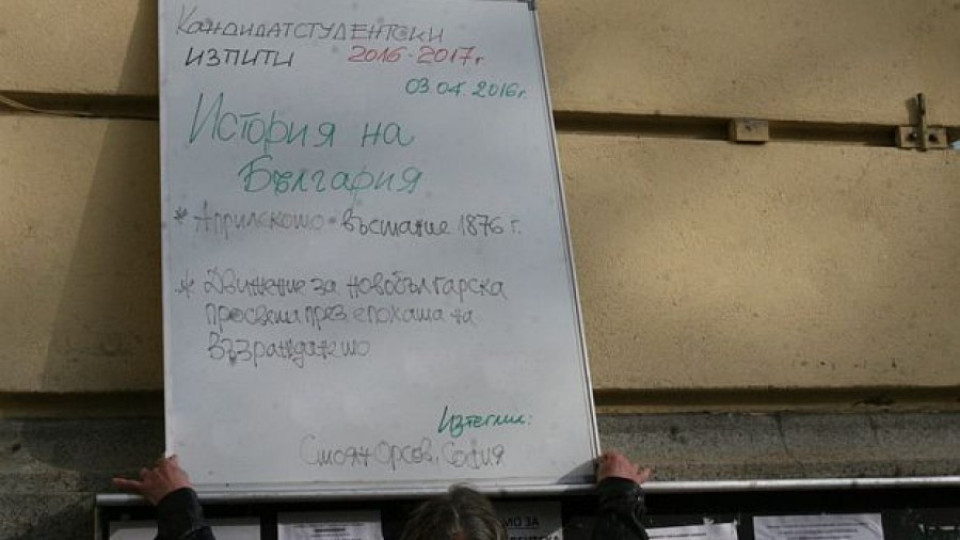 Кандидатстудентски
изпити 2016-2017г.
03.04.2016г.
История на
България
* Априлското въстание 1876 г.
* Движение за новобългарска
просвета през епохата на
Възраждането
Изтеглил:
Стоян Орсов, София
МО ЗА